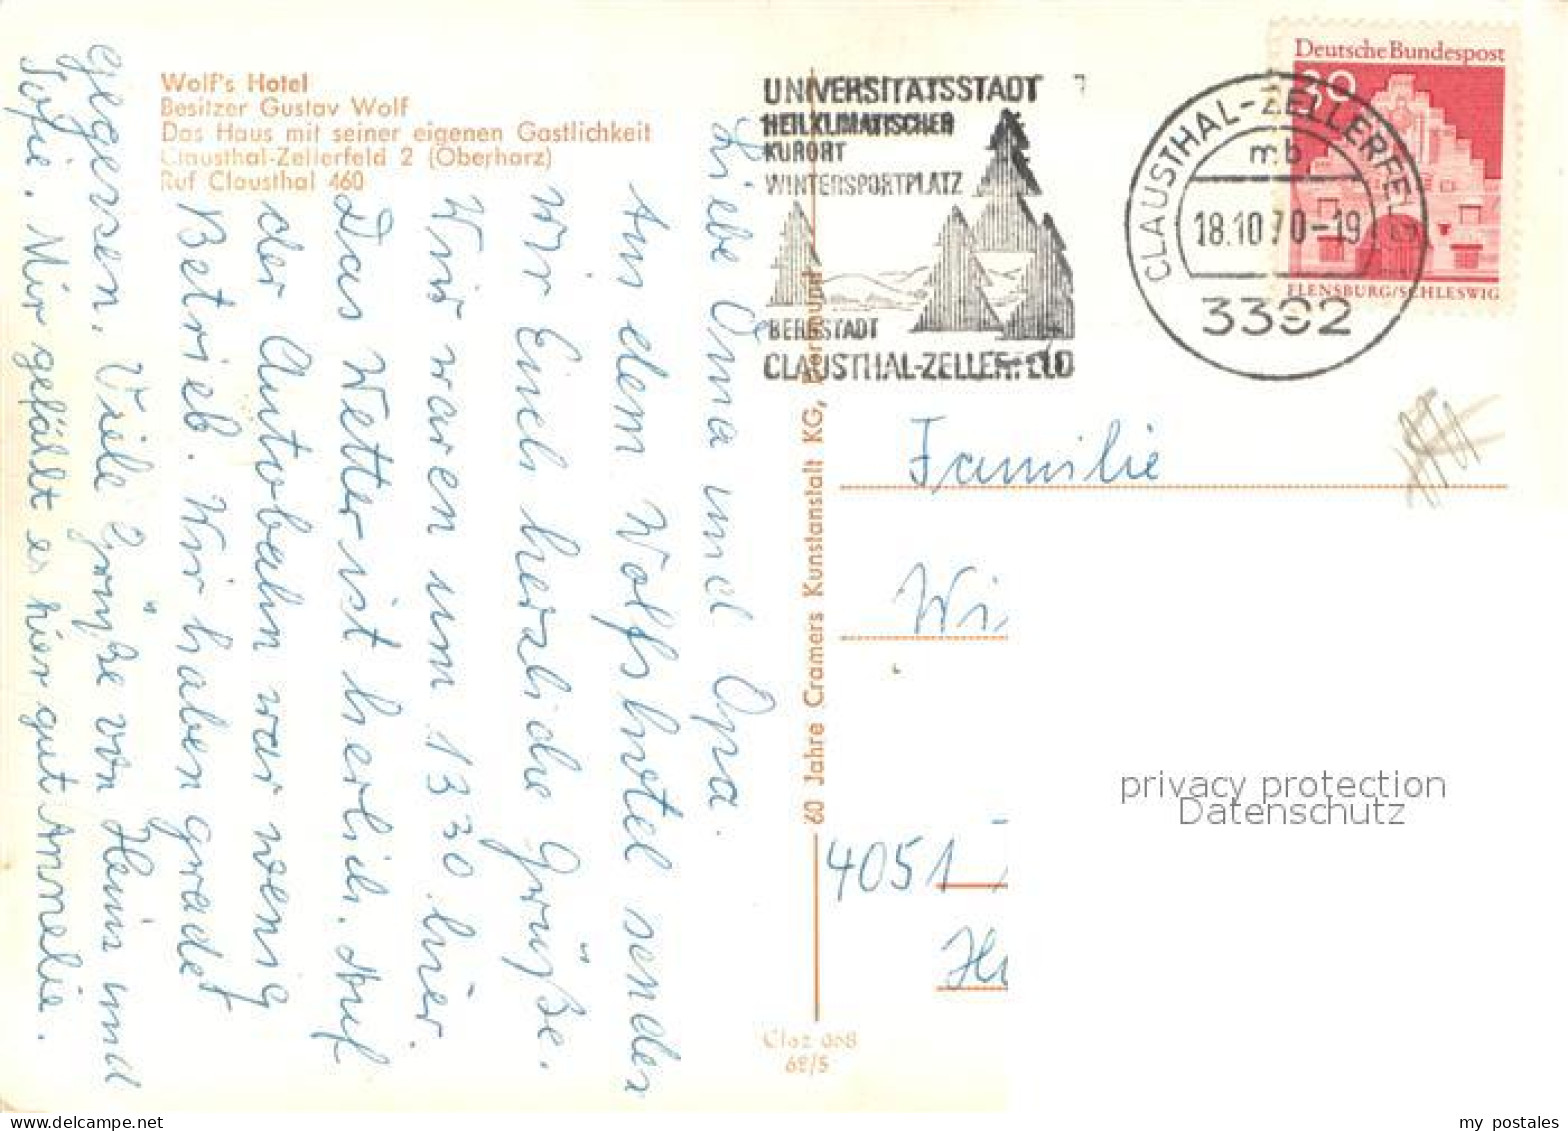 Wolf's Hotel
Besitzer Gustav Wolf
Das Haus mit seiner eigenen Gastlichkeit
Clausthal-Zellerfeld 2 (Oberharz)
Ruf Clausthal 460
UNIVERSITÄTSSTADT
HEILKLIMATISCHER
KURORT
WINTERSPORTPLATZ
BERGSTADT
CLAUSTHAL-ZELLERFELD
CLAUSTHAL-ZELLERFELD
mb
18.10.70-19
3392
Deutsche Bundespost
30
FLENSBURG/SCHLESWIG
Liebe Oma und Opa.
Aus dem Wolfshotel senden
wir Euch herzliche Grüße.
Wir waren um 1330 hier.
Das Wetter ist herlich. Auf
der Autobahn war wenig
Betrieb. Wir haben gradet
gegessen. Viele Grüße von Heinz und
Sofie. Mir gefällt es hier gut Annelie.
60 Jahre Cramers Kunstanstalt KG, Dortmund
Claz 668
62/5
Familie
Wi
4051
privacy protection
Datenschutz
my postales